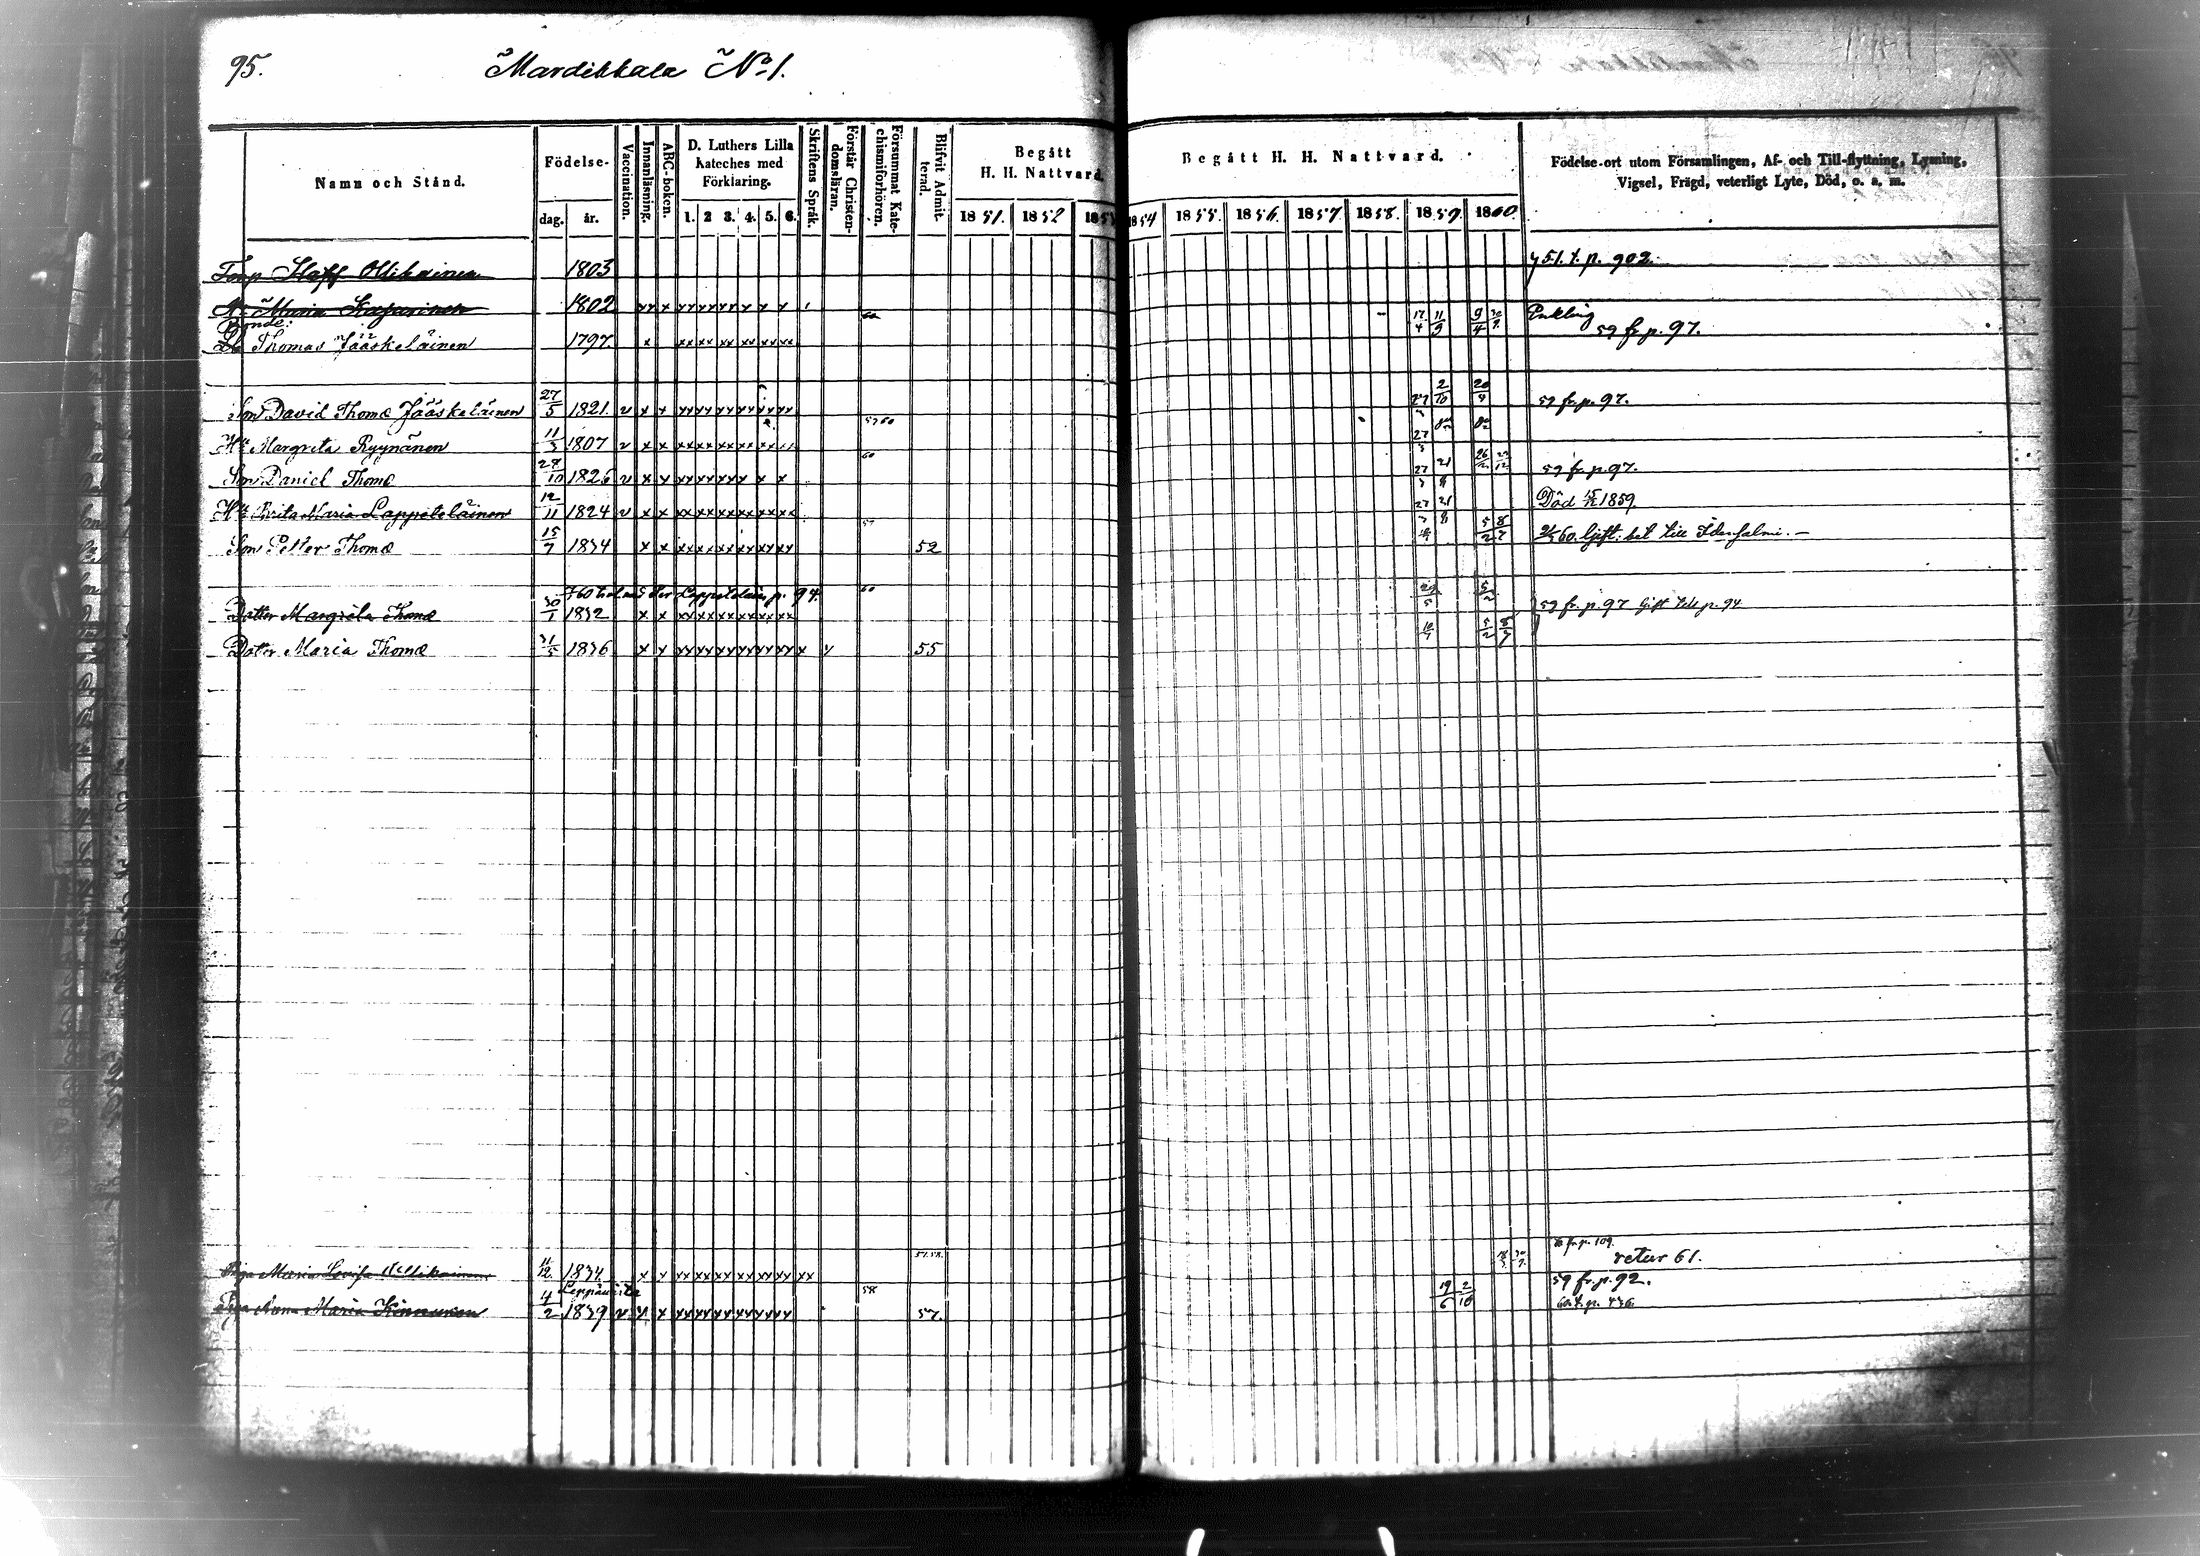 95. Mardikkala No 1.
Namn och Stånd. Födelse- dag. år. Vaccination. Innanläsning. ABC-boken. D. Luthers Lilla Kateches med Förklaring. 1. 2 3. 4. 5. 6. Skriftens Språk. Förstår Christendomsläran. Försummat Katechismiförhören. Blifvit Admitterad. Begått H. H. Nattvard. 1851. 1852 1853
Begått H. H. Nattvard. 1854 1855. 1856. 1857. 1858. 1859. 1860. Födelse-ort utom Församlingen, Af- och Till-flyttning, Lysning, Vigsel, Frägd, veterligt Lyte, Död, o. s. m.
Torp Staff Ollikainen 1803 51. t. p. 902.
Maria Kasurinen 1802 x x x
Bonde: Enkling
Thomas Jääskeläinen 1797. 60 17/4 11/9 9/4 59 fr p. 97.
Son David Thomæ Jääskeläinen 27/5 1821. v x x 57 60 2/10 20/4 59 fr. p. 97.
Hu Margreta Ryynänen 11/3 1807 v x x
Son Daniel Thomæ 28/10 1826 v x x 60 59 fr. p. 97.
Hu Brita Maria Lappeteläinen 12/11 1824 v x x Död 1859.
Son Petter Thomæ 15/7 1834 x x 57 52 5/2 8/7 60. Gift. bet till Idensalmi. –
p. 94.
Dotter Margreta Thomæ 30/1 1832 x x 60 5/2 59 fr. p. 97 Gift p. 94
Dotter Maria Thomæ 31/5 1836 x x 55 5/2 8/7
57.58. fr. p. 109.
Piga Maria Lovisa Ollikainen 11/12 1834. x x retur 61.
Leppävirta
Piga Anna Maria Kinnunen 4/2 1839 v x x 58 57. 19/6 2/10 59 fr. p. 92.
60. t. p. 436.